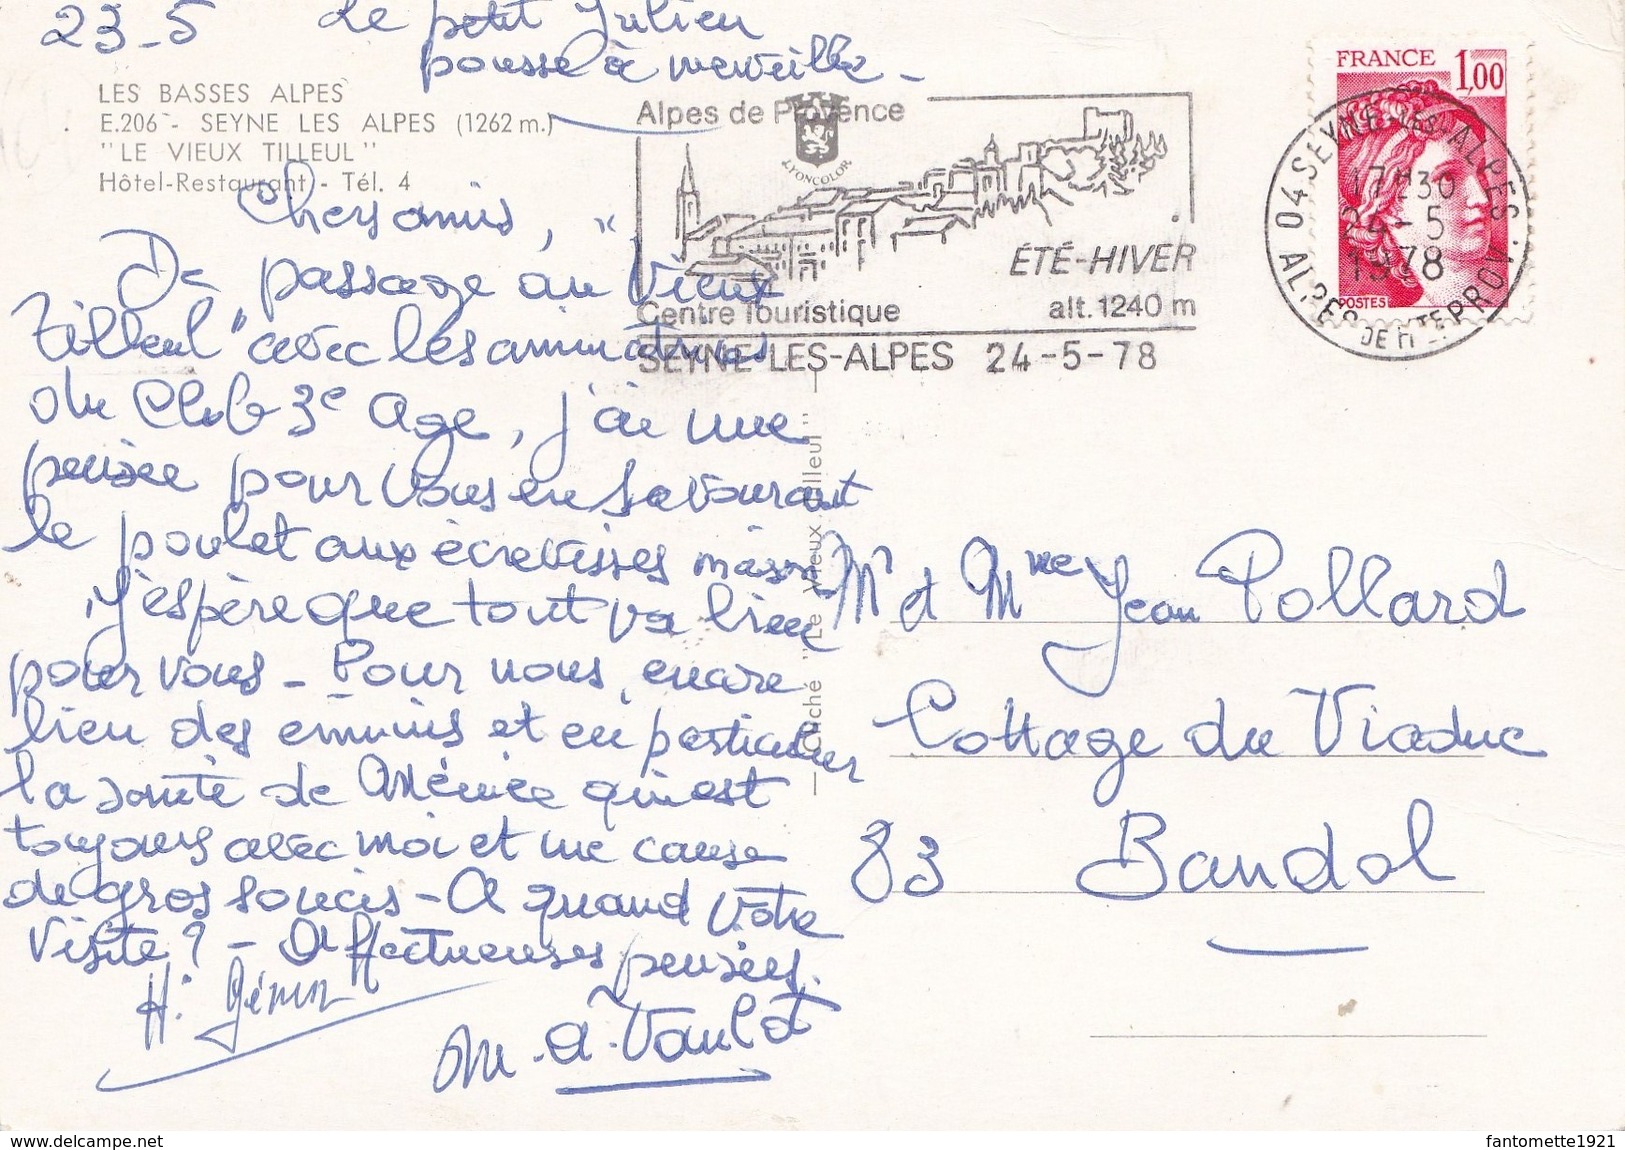 23-5 Le petit Julien
pousse à merveille -
LES BASSES ALPES
E.206 - SEYNE LES ALPES (1262 m.)
"LE VIEUX TILLEUL"
Hôtel-Restaurant - Tél. 4
Alpes de Provence
LYONCOLOR
ÉTÉ-HIVER
Centre Touristique alt. 1240 m
SEYNE-LES-ALPES 24-5-78
FRANCE 1,00
POSTES
04 SEYNE-LES-ALPES
17H30
24-5
1978
ALPES DE HTE PROV.
Chers amis,
De passage au "Vieux
Tilleul" avec les animatrices
du Club 3e Age, j'ai une
pensée pour vous en savourant
le poulet aux écrevisses maison
J'espère que tout va bien
pour vous - Pour nous, encore
bien des ennuis et en particulier
la santé de qui est
toujours avec moi et me cause
de gros soucis - A quand votre
visite ? - Affectueuses pensées.
H. Génin
M. A. Vaulot
Cliché "Le Vieux Tilleul"
Mr et Mme Jean Pollard
Cottage du Viaduc
83 Bandol
www.delcampe.net
fantomette1921